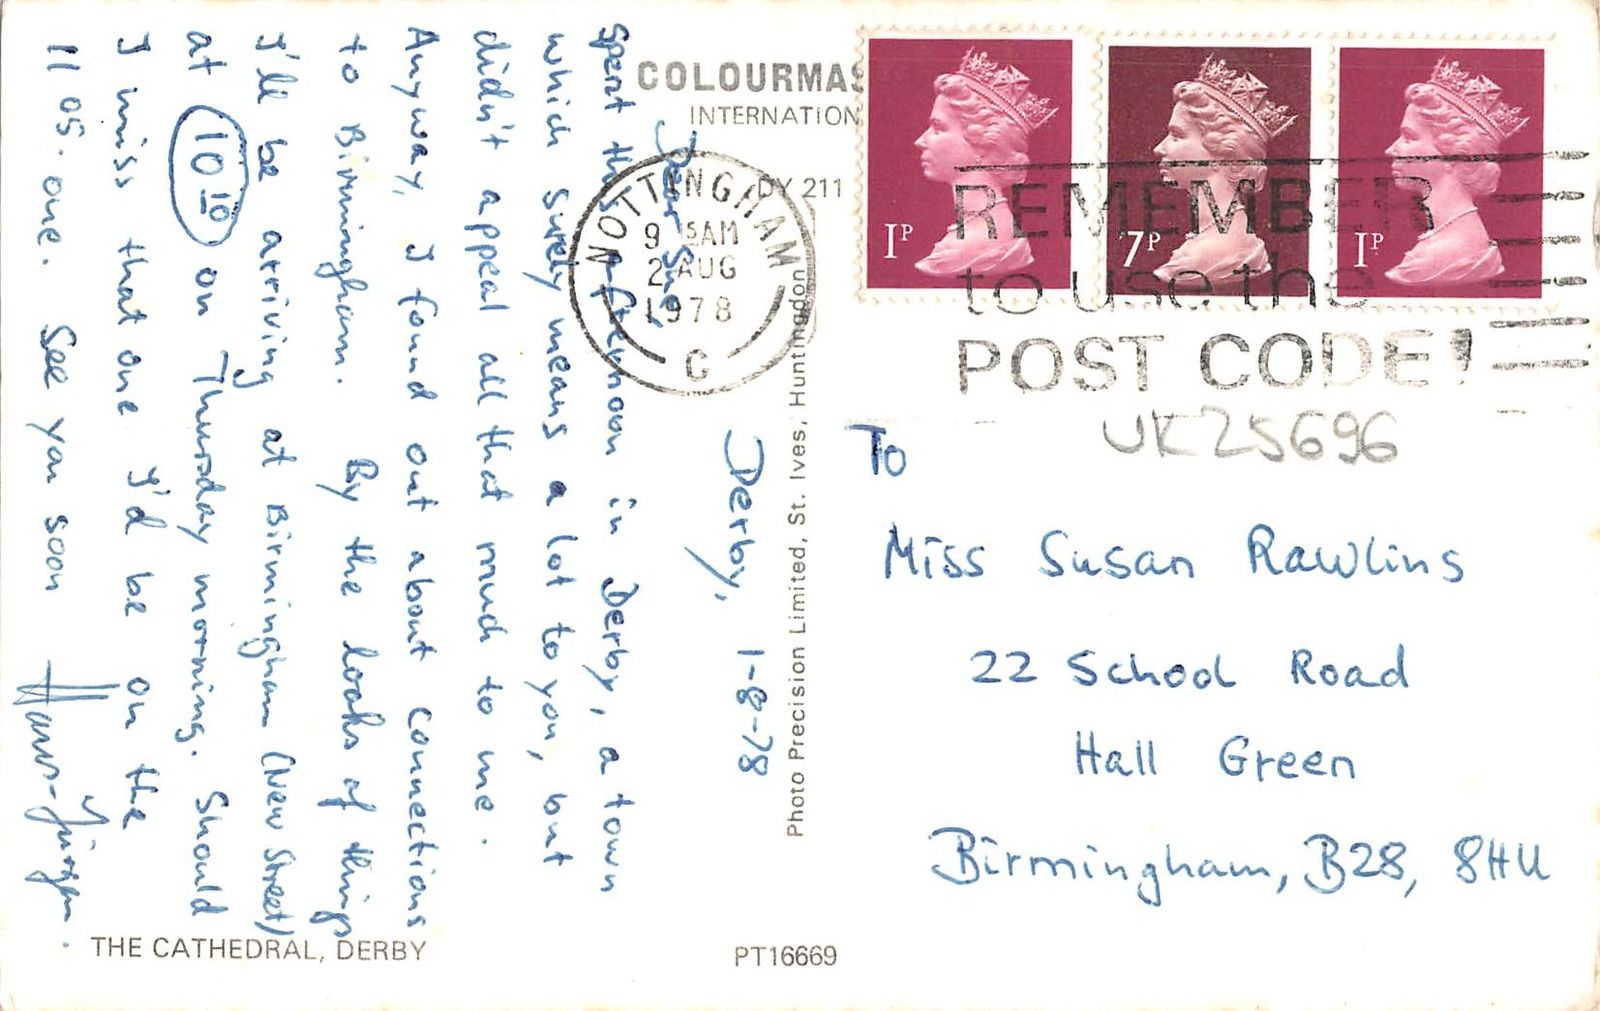 COLOURMAS
INTERNATION
DY 211
NOTTINGHAM
9 15AM
2 AUG
1978
G
1P
7P
1P
REMEMBER
to use the
POST CODE!
UK25696
Derby, 1-8-78
Dear Sue,
Spent this afternoon in Derby, a town
which surely means a lot to you, but
didn't appeal all that much to me.
Anyway, I found out about connections
to Birmingham. By the looks of things
I'll be arriving at Birmingham (New Street)
at 10 10 on Thursday morning. Should
I miss that one I'd be on the
11 05. one. See you soon Hans-Jürgen.
Photo Precision Limited, St. Ives, Huntingdon
To
Miss Susan Rawlins
22 School Road
Hall Green
Birmingham, B28, 8HU
THE CATHEDRAL, DERBY
PT16669